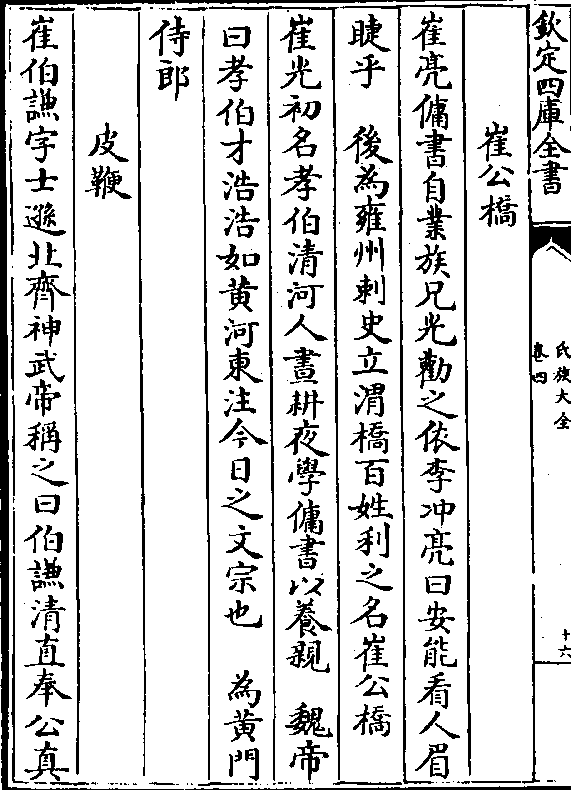 欽定四庫全書
氏族大全
卷四
十六
崔公橋
崔亮傭書自業族兄光勸之依李冲亮曰安能看人眉
睫乎　後為雍州刺史立渭橋百姓利之名崔公橋
崔光初名孝伯清河人晝耕夜學傭書以養親　魏帝
曰孝伯才浩浩如黄河東注今日之文宗也　為黄門
侍郎
皮鞭
崔伯謙字士遜北齊神武帝稱之曰伯謙清直奉公真